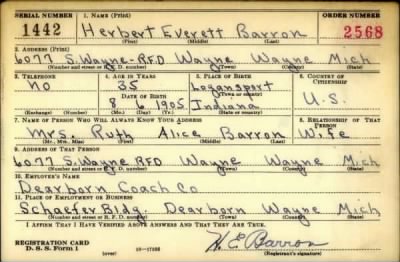 SERIAL NUMBER 1. NAME (Print) ORDER NUMBER
1442 Herbert Everett Barron 2568
(First) (Middle) (Last)
2. ADDRESS (Print)
6077 S. Wayne - RFD Wayne Wayne Mich
(Number and street or R. F. D. number) (Town) (County) (State)
3. TELEPHONE 4. AGE IN YEARS 5. PLACE OF BIRTH 6. COUNTRY OF CITIZENSHIP
No 35 Logansport
DATE OF BIRTH (Town or county)
8 6 1905 Indiana U.S.
(Exchange) (Number) (Mo.) (Day) (Yr.) (State or country)
7. NAME OF PERSON WHO WILL ALWAYS KNOW YOUR ADDRESS 8. RELATIONSHIP OF THAT PERSON
Mrs. Ruth Alice Barron Wife
(Mr., Mrs., Miss) (First) (Middle) (Last)
9. ADDRESS OF THAT PERSON
6077 S. Wayne RFD Wayne Wayne Mich
(Number and street or R. F. D. number) (Town) (County) (State)
10. EMPLOYER'S NAME
Dearborn Coach Co
11. PLACE OF EMPLOYMENT OR BUSINESS
Schaefer Bldg. Dearborn Wayne Mich
(Number and street or R. F. D. number) (Town) (County) (State)
I AFFIRM THAT I HAVE VERIFIED ABOVE ANSWERS AND THAT THEY ARE TRUE.
REGISTRATION CARD
D. S. S. Form 1 (over) H. E. Barron
(Registrant's signature)